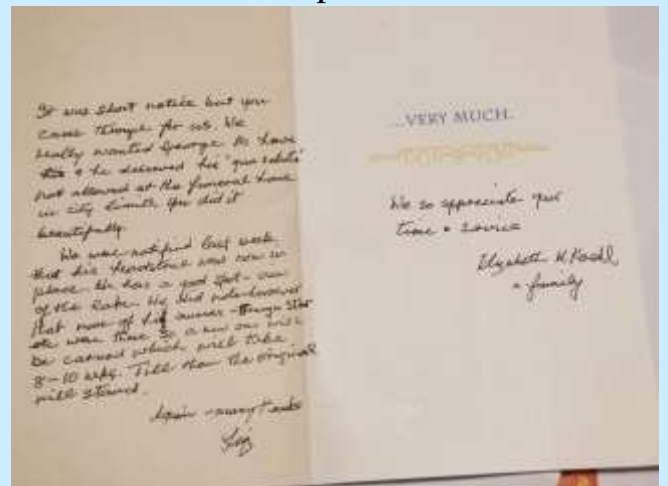 It was short notice but you
came through for us. We
really wanted George to have
this & he deserved his "gun salute"
not allowed at the funeral home
in city limits you did it
beautifully.
We were notified last week
that his headstone was now in
place. He has a good spot - view
of the lake. We did note however
that none of his awards - Bronze Star
etc were there so a new one will
be carved which will take
8-10 wks. Till then the original
will stand.
Again - many thanks
Liz
...VERY MUCH.
We so appreciate your
time & service
Elizabeth K.
& family